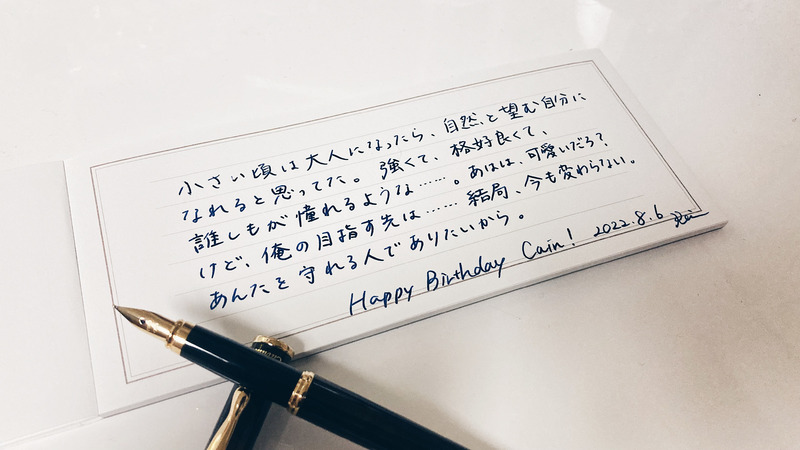 小さい頃は大人になったら、自然と望む自分に
なれると思ってた。強くて、格好良くて、
誰しもが憧れるような……。あはは、可愛いだろ?
けど、俺の目指す先は……結局、今も変わらない。
あんたを守れる人でありたいから。
Happy Birthday Cain! 2022.8.6